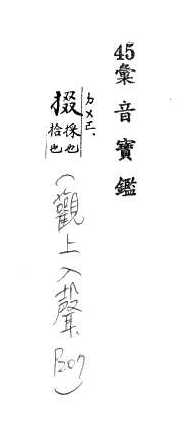 45彙音寶鑑
掇 ㄉㄨㄛ、
採也
拾也
(觀上入聲, P307)